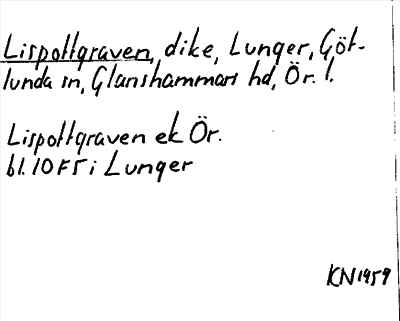 Lispottgraven, dike, Lunger, Göt-
lunda sn, Glanshammars hd, Ör. l.
Lispottgraven ek Ör.
bl. 10 F5 i Lunger
KN 1959